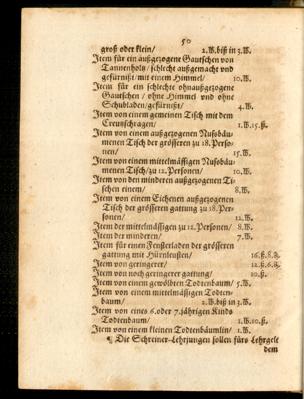 50
groß oder klein/ 2.W.biß in 3.W.
Item für ein außgezogene Gautschen von
Tannenholz/schlecht außgemacht und
gefürnißt/mit einem Himmel/ 10.W.
Item für ein schlechte ohnaußgezogene
Gautschen / ohne Himmel und ohne
Schubladen/gefürnißt/ 4.W.
Item von einem gemeinen Tisch mit dem
Creutzschragen/ 1.W.15.ß.
Item von einem außgezogenen Nusobäu-
menen Tisch der grösseren zu 18.Perso-
nen/ 15.W.
Item von einem mittelmässigen Nusobäu-
menen Tisch/zu 12.Personen/ 10.W.
Item von den minderen außgezogenen Ti-
schen einem/ 8.W.
Item von einem Eichenen außgezogenen
Tisch der grösseren gattung zu 18.Per-
sonen/ 12.W.
Item der mittelmässigen zu 12.Personen/ 8.W.
Item der minderen/ 7.W.
Item für einen Fensterladen der grösseren
gattung mit Hürnleusten/ 16.ß.8.
Item von geringerer/ 12.ß.6.
Item von noch geringerer gattung/ 10.ß.
Item von einem gewölbten Todtenbaum/ 5.W.
Item von einem mittelmäsigen Todten-
baum/ 2.W.biß in 3.W.
Item von eines 6.oder 7.jährigen Kinds
Todtenbaum/ 1.W.10.ß.
Item von einem kleinen Todtenbäumlin/ 1.W.
¶ Die Schreiner-Lehrjungen sollen fürs Lehrgelt
dem